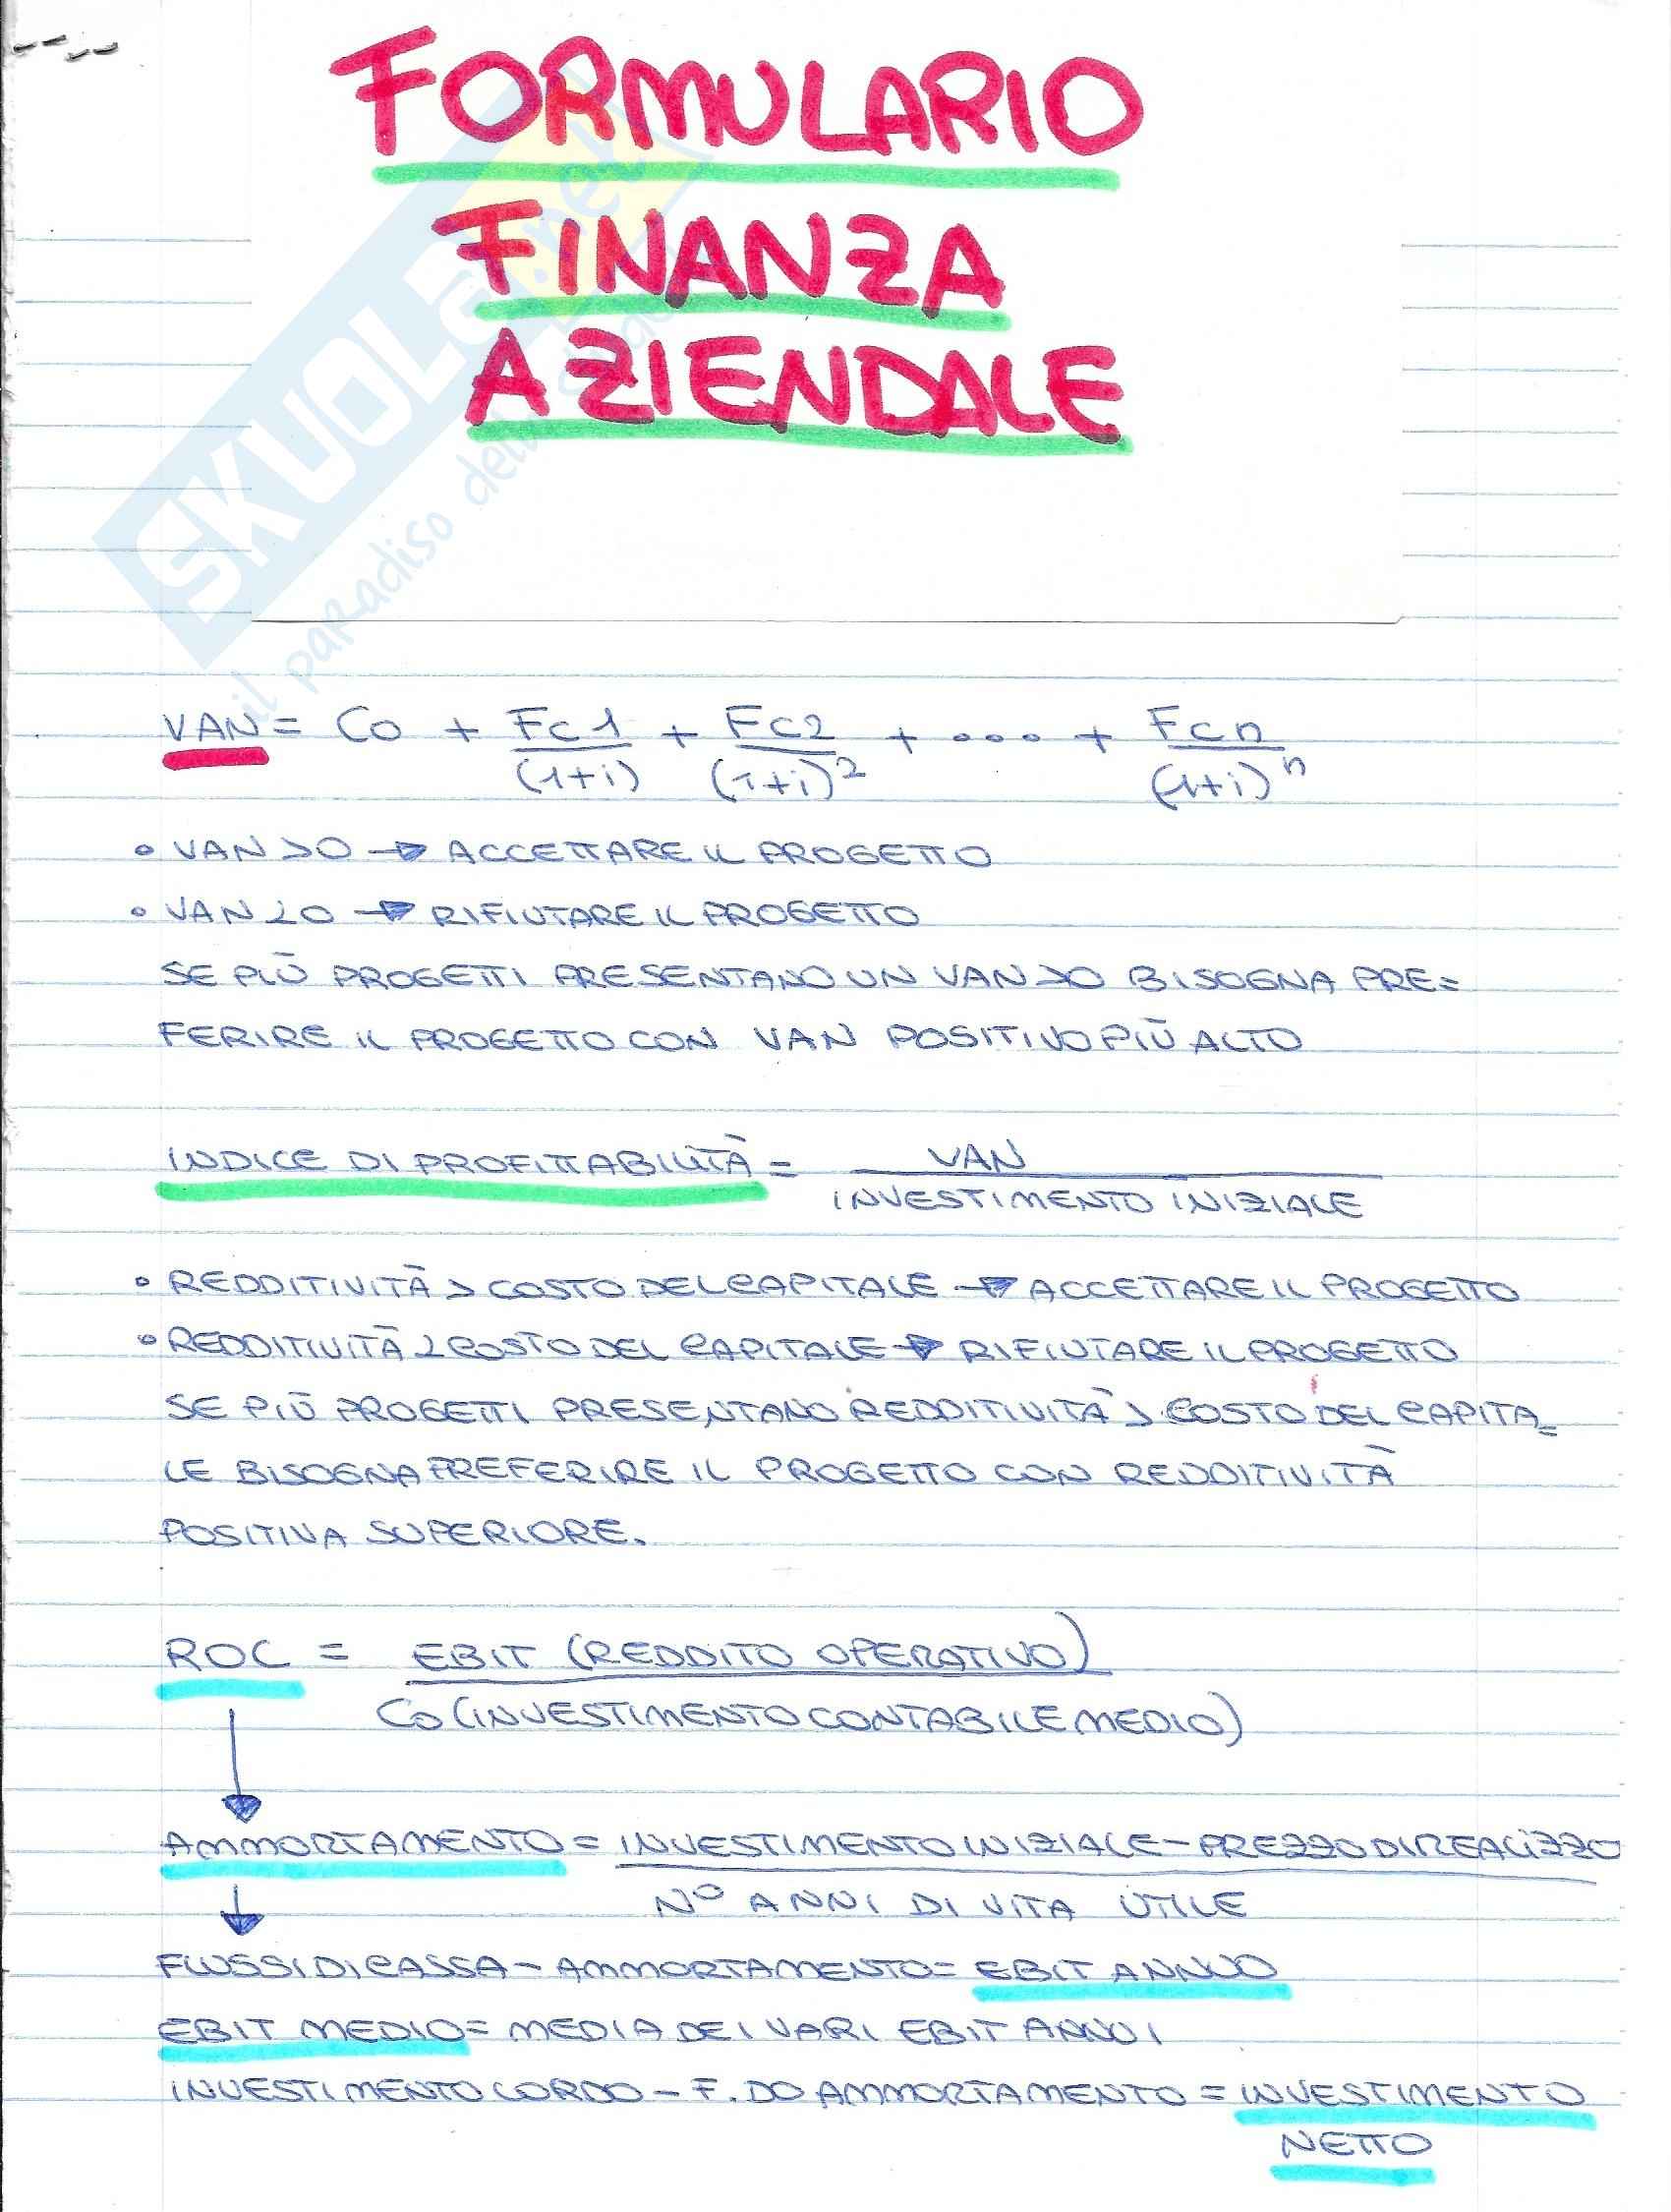 FORMULARIO
FINANZA
AZIENDALE
SKUOLa.net
il paradiso dello
VAN = Co + Fc1/(1+i) + Fc2/(1+i)² + ... + Fcn/(1+i)ⁿ
• VAN > 0 → ACCETTARE IL PROGETTO
• VAN < 0 → RIFIUTARE IL PROGETTO
SE PIÙ PROGETTI PRESENTANO UN VAN > 0 BISOGNA PRE=
FERIRE IL PROGETTO CON VAN POSITIVO PIÙ ALTO
INDICE DI PROFITTABILITÀ = VAN / INVESTIMENTO INIZIALE
• REDDITIVITÀ > COSTO DEL CAPITALE → ACCETTARE IL PROGETTO
• REDDITIVITÀ < COSTO DEL CAPITALE → RIFIUTARE IL PROGETTO
SE PIÙ PROGETTI PRESENTANO REDDITIVITÀ > COSTO DEL CAPITA=
LE BISOGNA PREFERIRE IL PROGETTO CON REDDITIVITÀ
POSITIVA SUPERIORE.
ROC = EBIT (REDDITO OPERATIVO)
Co (INVESTIMENTO CONTABILE MEDIO)
AMMORTAMENTO = INVESTIMENTO INIZIALE - PREZZO DI REALIZZO
N° ANNI DI VITA UTILE
FLUSSI DI CASSA - AMMORTAMENTO = EBIT ANNUO
EBIT MEDIO = MEDIA DEI VARI EBIT ANNUI
INVESTIMENTO LORDO - F.DO AMMORTAMENTO = INVESTIMENTO
NETTO